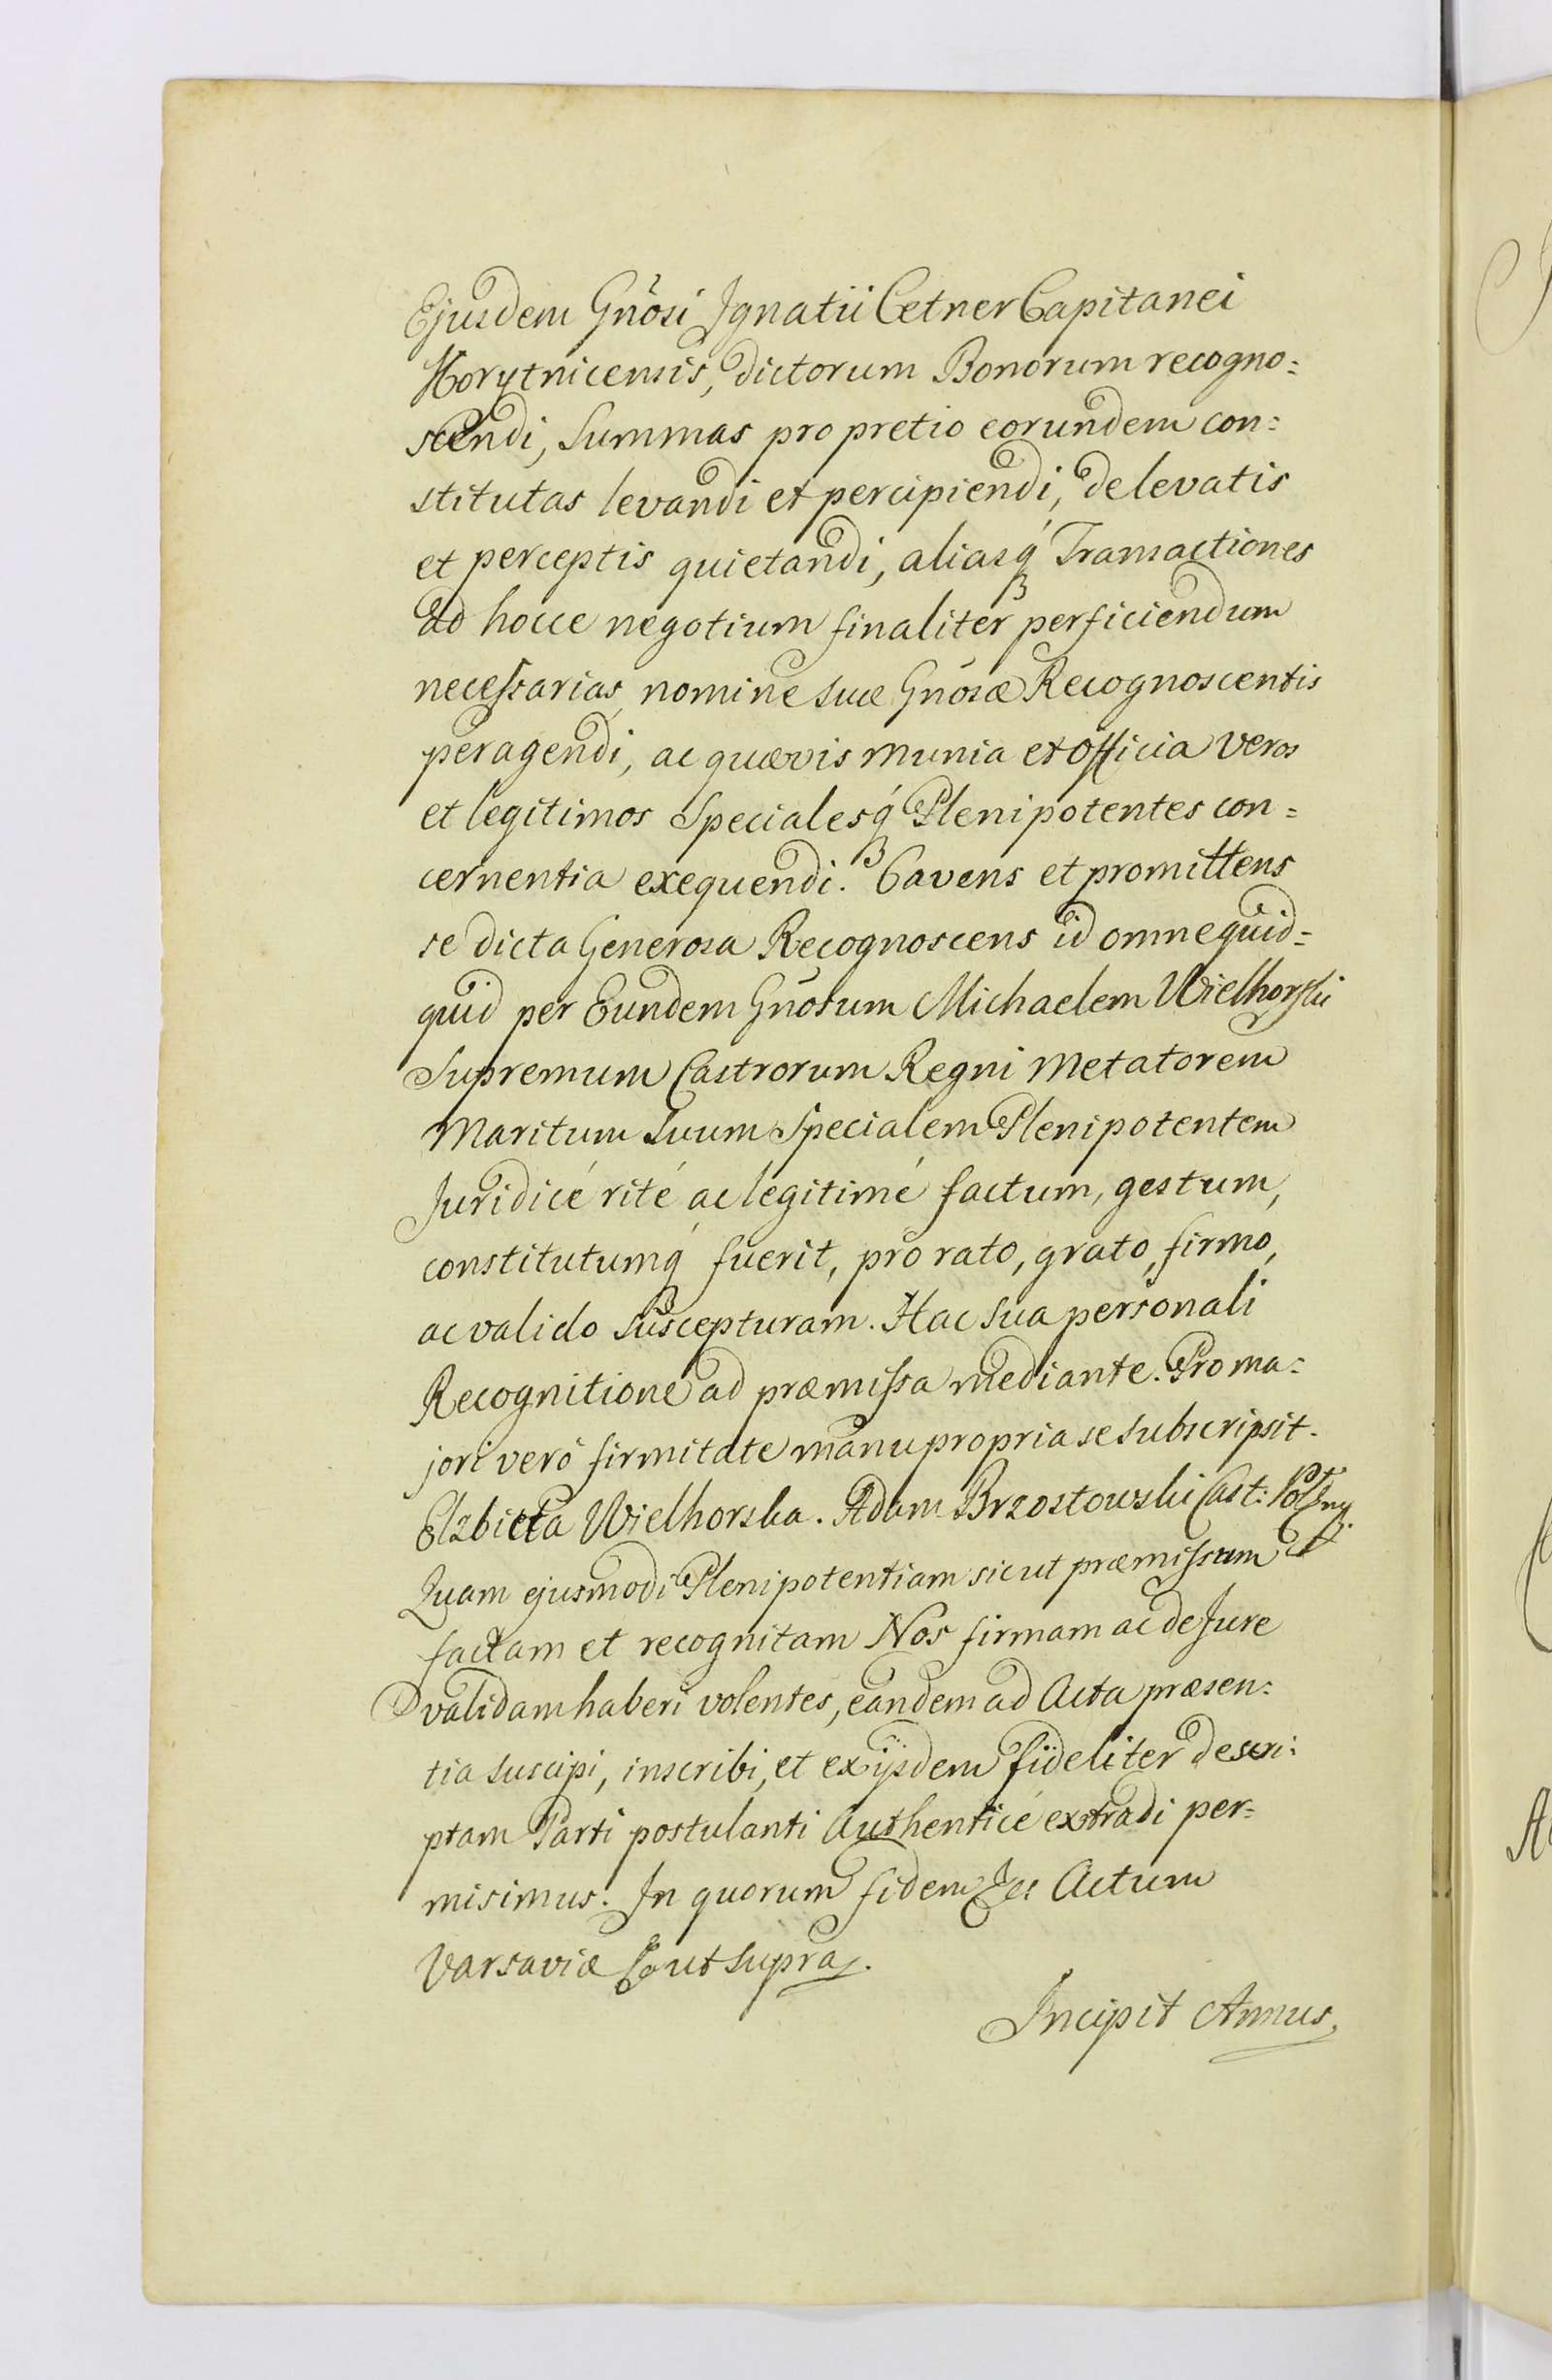 Ejusdem Gnõsi Ignatii Cetner Capitanei
Korytnicensis, dictorum Bonorum recogno:
scendi, Summas pro pretio eorundem con:
stitutas levandi et percipiendi, de levatis
et perceptis quietandi, aliasq́ Transactiones
ad hocce negotium finaliter perficiendum
necessarias, nomine suæ Gnõsæ Recognoscentis
peragendi, ac quævis munia et officia veros
et legitimos Specialesq́ Plenipotentes con=
cernentia exequendi. Cavens et promittens
se dicta Generosa Recognoscens id omne quid=
quid per Eundem Gnõsum Michaelem Wielhorski
Supremum Castrorum Regni Metatorem
Maritum Suum Specialem Plenipotentem
Juridicé rité ac legitimé factum, gestum,
constitutumq́ fuerit, pro rato, grato, firmo,
ac valido suscepturam. Hac sua personali
Recognitione ad præmissa mediante. Pro ma:
jori veró firmitate manu propria se subscripsit.
Elzbieta Wielhorska. Adam Brzostowski Cast:
Quam ejusmodi Plenipotentiam sicut præmissum est
factam et recognitam Nos firmam ac de Jure
validam haberi volentes, eandem ad Acta præsen:
tia suscipi, inscribi, et ex ijsdem fideliter descri:
ptam Parti postulanti authenticé extradi per=
misimus. In quorum fidem &c Actum
Varsaviæ &c ut supra.
Incipit Annus.